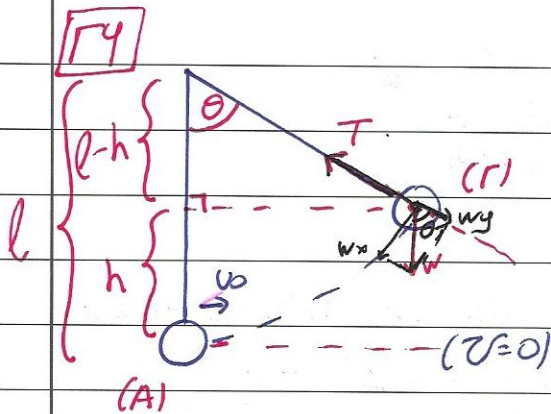 Γ4
θ
l-h
T
(Γ)
l
wy
θ
wx
w
h
υ0
(U=0)
(A)